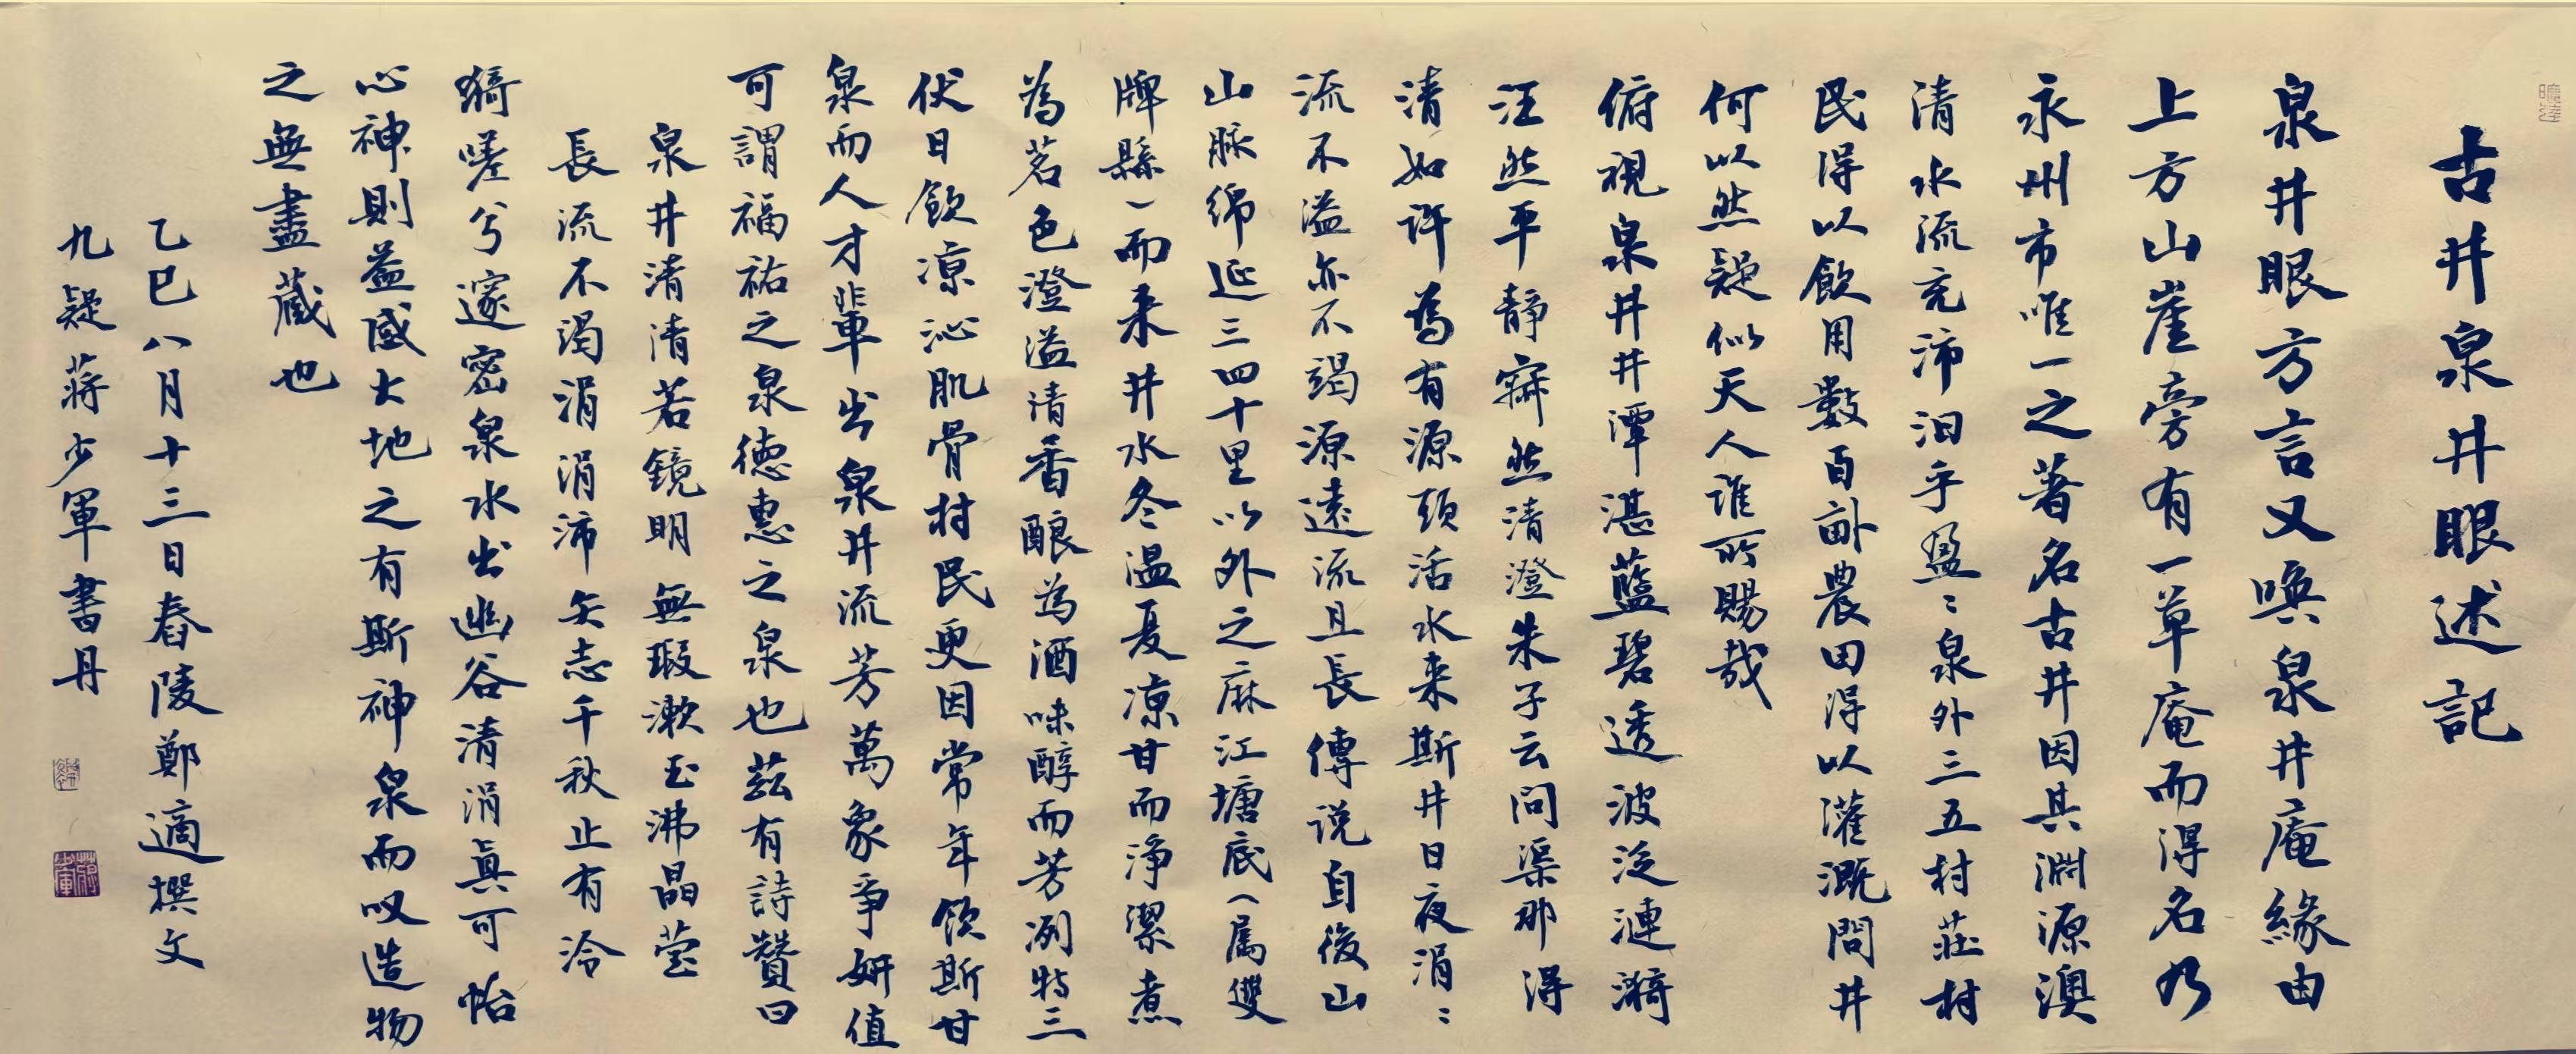 古井泉井眼述記
泉井眼方言又喚泉井庵緣由
上方山崖旁有一草庵而得名乃
永州市唯一之著名古井因其淵源澳
清水流充沛汩乎盈〻泉外三五村莊村
民得以飲用數百畝農田得以灌溉問井
何以然疑似天人誰所賜哉
俯視泉井井潭湛藍碧透波泛漣漪
汪然平靜寂然清澄朱子云問渠那得
清如許為有源頭活水来斯井日夜涓〻
流不溢亦不竭源遠流且長傳説自後山
山脉綿延三四十里以外之麻江塘底（屬雙
牌縣）而来井水冬温夏凉甘而浄潔煮
為茗色澄溢清香釀為酒味醇而芳冽特三
伏日飲凉沁肌骨村民更因常年飲斯甘
泉而人才輩出泉井流芳萬象爭妍值
可謂福祐之泉德惠之泉也茲有詩贊曰
泉井清清若鏡明無瑕漱玉沸晶瑩
長流不渴涓涓沛矢志千秋止有泠
猗嗟兮邃密泉水出幽谷清涓眞可怡
心神則益感大地之有斯神泉而叹造物
之無盡蔵也
乙巳八月十三日舂陵鄭適撰文
九疑蔣少軍書丹